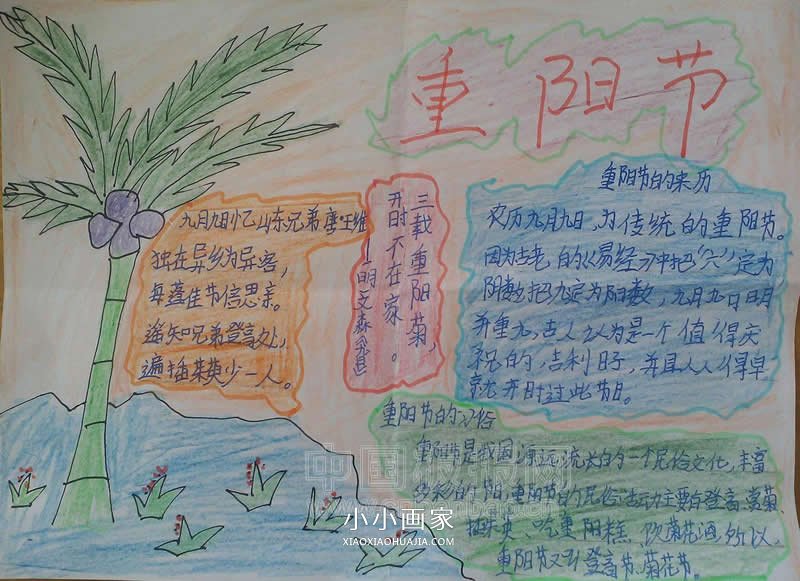 重阳节
九月九日忆山东兄弟 唐·王维
独在异乡为异客，
每逢佳节倍思亲。
遥知兄弟登高处，
遍插茱萸少一人。
三载重阳菊，
开时不在家。
重阳节的来历
农历九月九日，为传统的重阳节。
因为古老的《易经》中把“六”定为
阴数，把九定为阳数，九月九日日月
并重九，古人认为是一个值得庆
祝的吉利日子，并且人人很早
就开时过此节日。
重阳节的习俗
重阳节是我国源远流长的一个民俗文化，丰富
多彩的节日，重阳节的民俗活动主要有登高、赏菊、
插茱萸、吃重阳糕、饮菊花酒，所以，
重阳节又叫登高节、菊花节。
中国板报网
小小画家
XIAOXIAOHUAJIA.COM